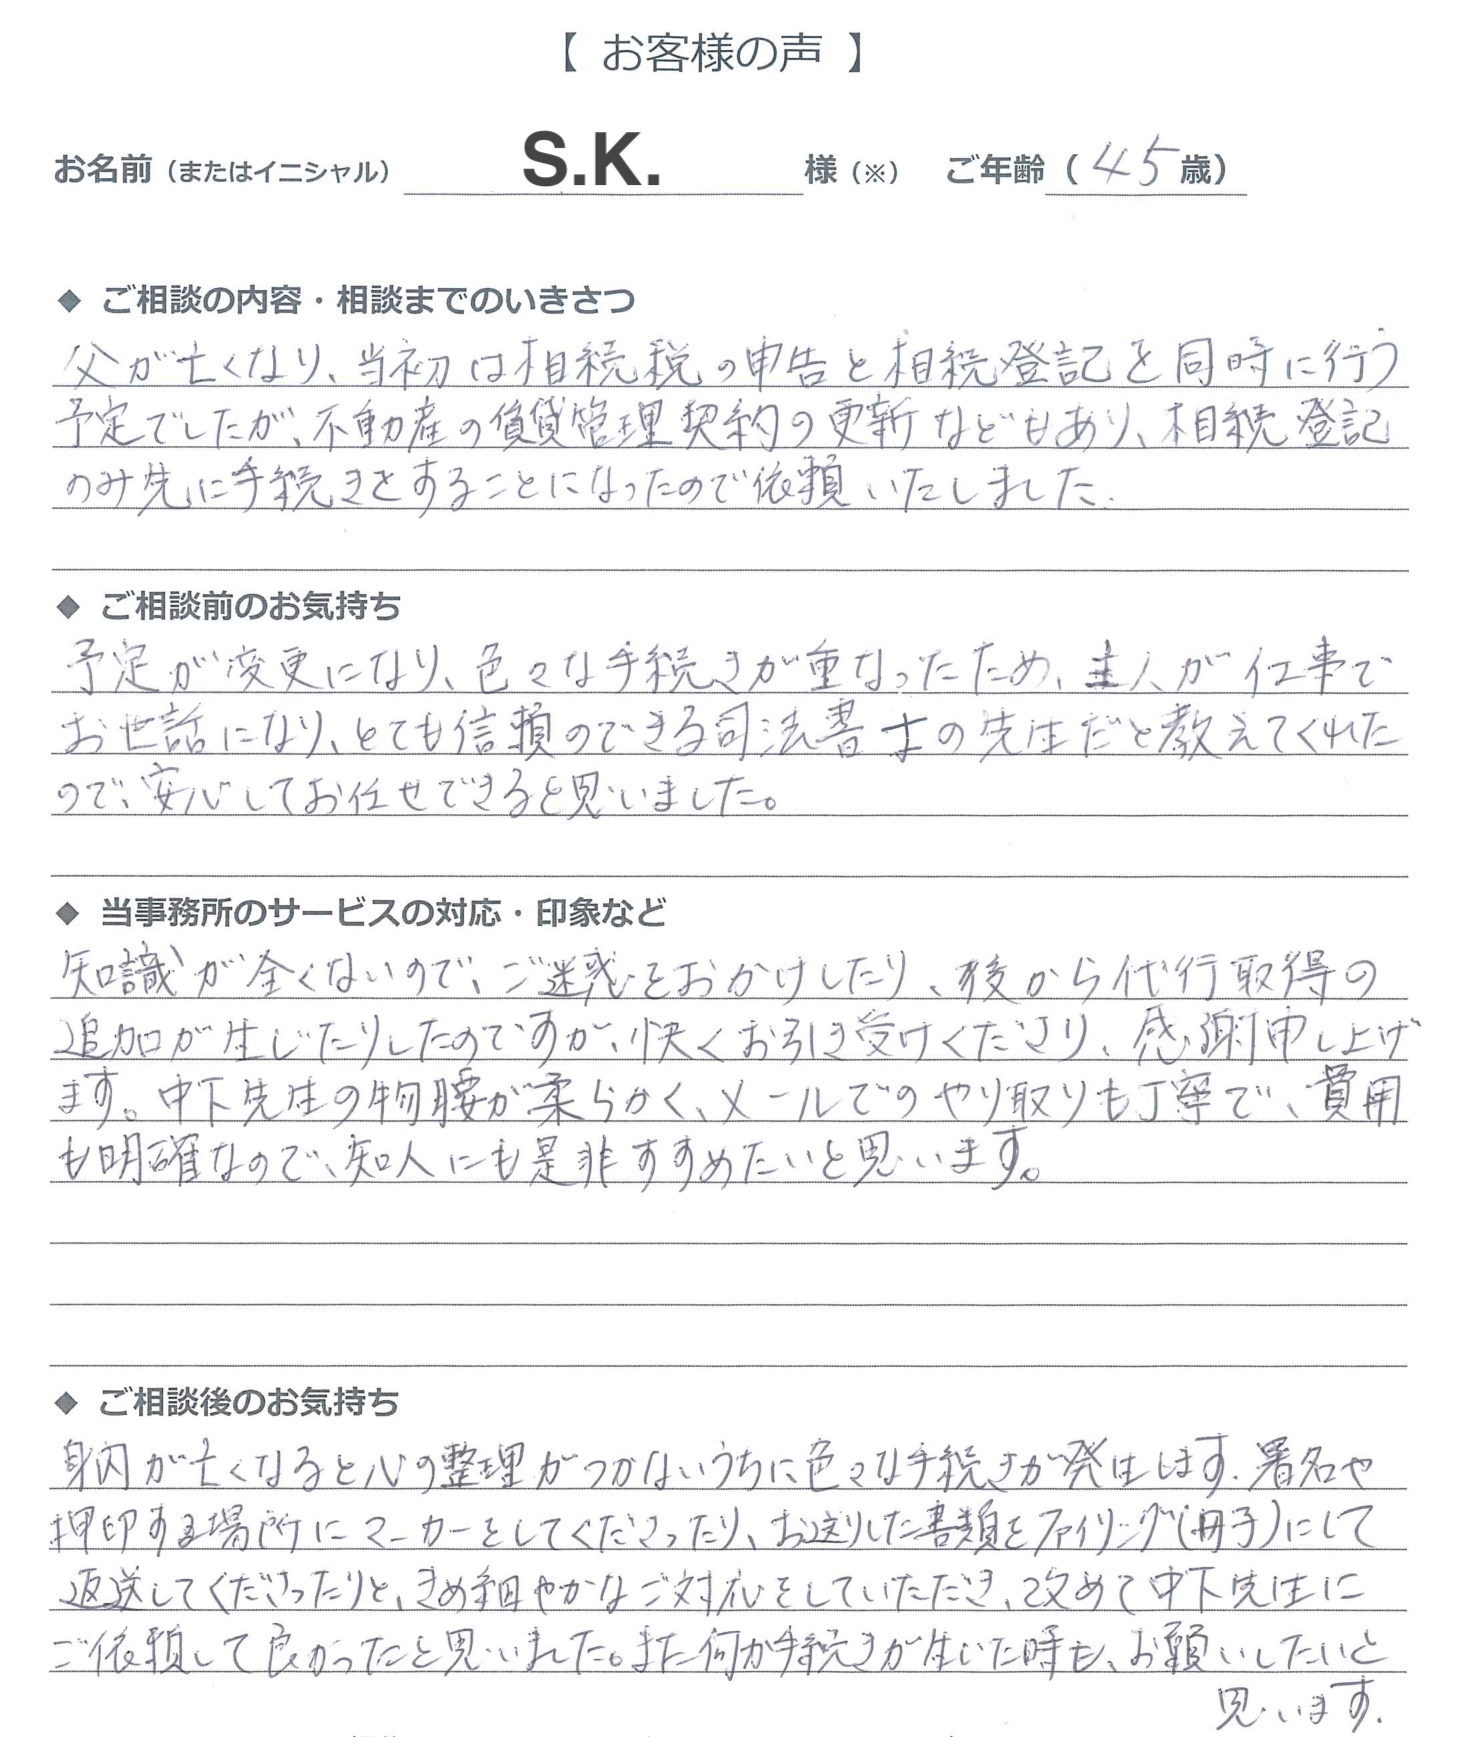 【 お客様の声 】
お名前（またはイニシャル） S.K. 様（※） ご年齢（45歳）
◆ ご相談の内容・相談までのいきさつ
父が亡くなり、当初は相続税の申告と相続登記を同時に行う
予定でしたが、不動産の賃貸管理契約の更新などもあり、相続登記
のみ先に手続きとすることになったので依頼いたしました.
◆ ご相談前のお気持ち
予定が変更になり、色々な手続きが重なったため、主人が仕事で
お世話になり、とても信頼のできる司法書士の先生だと教えてくれた
ので、安心してお任せできると思いました。
◆ 当事務所のサービスの対応・印象など
知識が全くないので、ご迷惑をおかけしたり、後から代行取得の
追加が生じたりしたのですが、快くお引き受けくださり、感謝申し上げ
ます。中下先生の物腰が柔らかく、メールでのやり取りも丁寧で、費用
も明確なので、知人にも是非すすめたいと思います。
◆ ご相談後のお気持ち
身内が亡くなると心の整理がつかないうちに色々な手続きが発生します.署名や
押印する場所にマーカーをしてくださったり、お送りした書類をファイリング(冊子)にして
返送してくださったりと、きめ細やかなご対応をしていただき、改めて中下先生に
ご依頼して良かったと思いました。また何か手続きが生じた時も、お願いしたいと
思います.